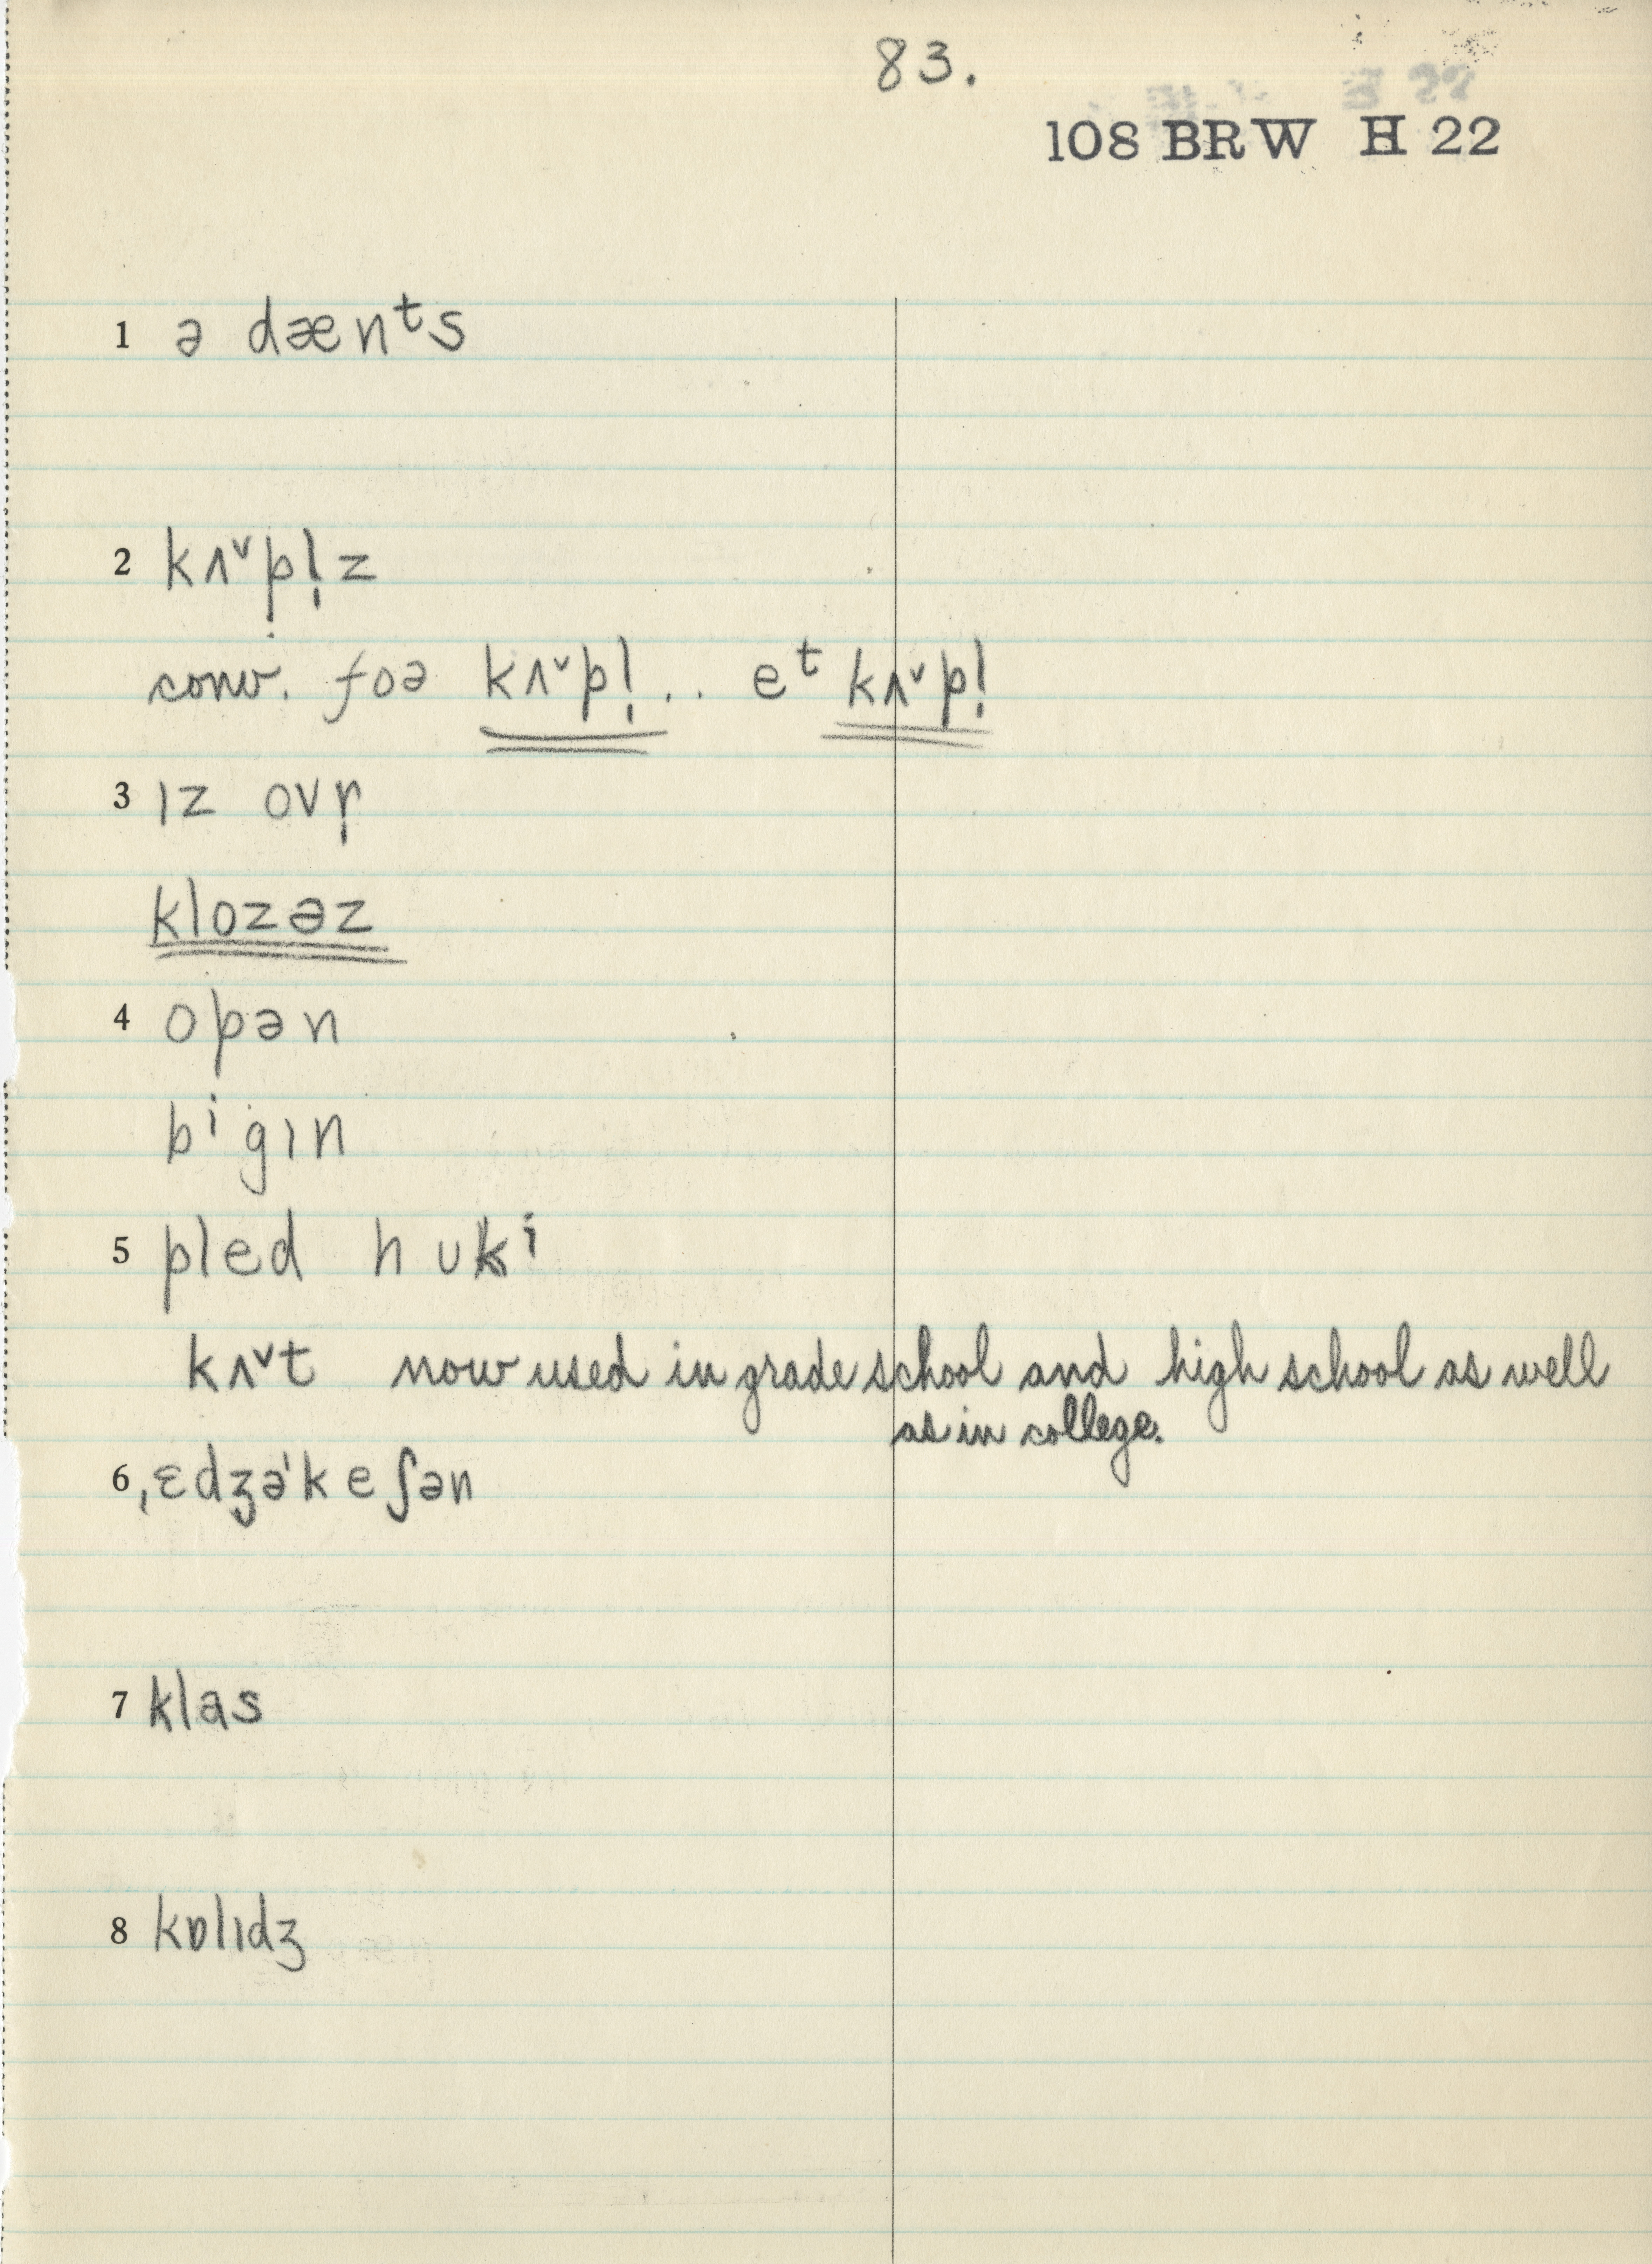 83.
108 BRW H 22
1 ə dænᵗs
2 kʌ˅pl̩z
conv. foə kʌ˅pl̩ . . eᵗ kʌ˅pl̩
3 ɪz ovr̩
klozəz
4 opən
bⁱgɪn
5 pled hukⁱ
kʌ˅t now used in grade school and high school as well
as in college.
6 ˌɛdʒəˈkeʃən
7 klas
8 kɒlɪdʒ